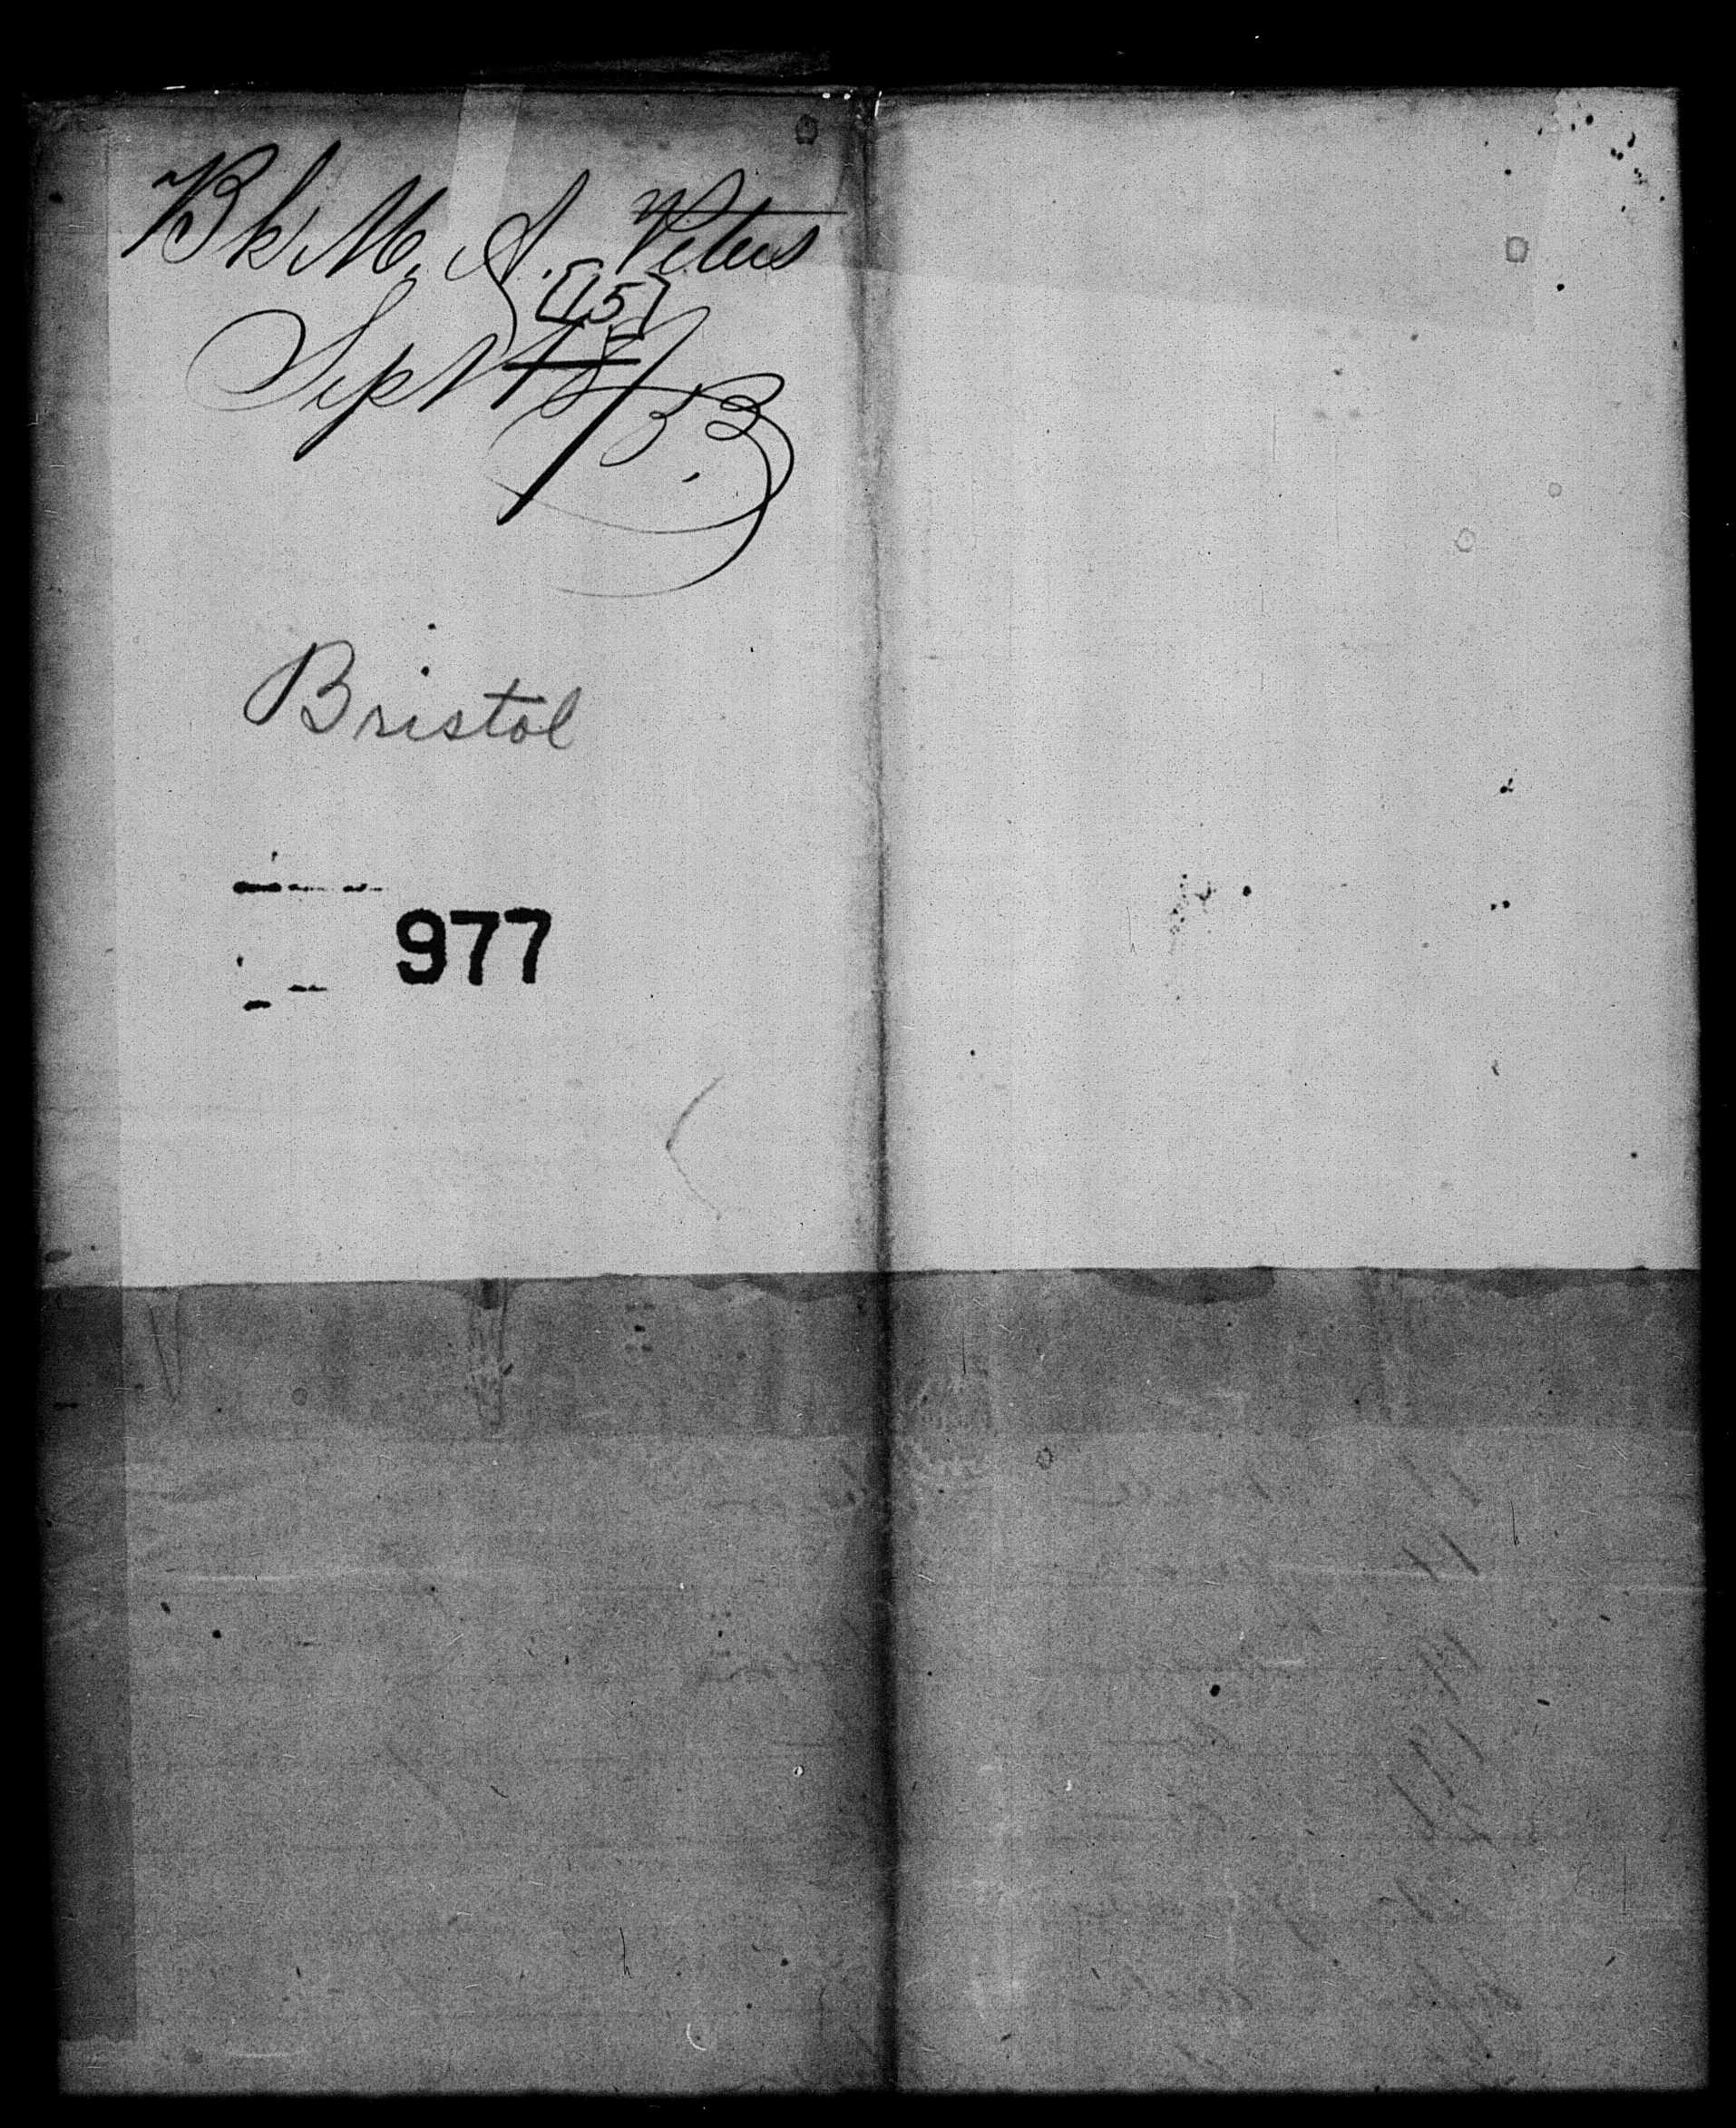 Bk M. A. Peters
[15]
Sept 15/33.
Bristol
977